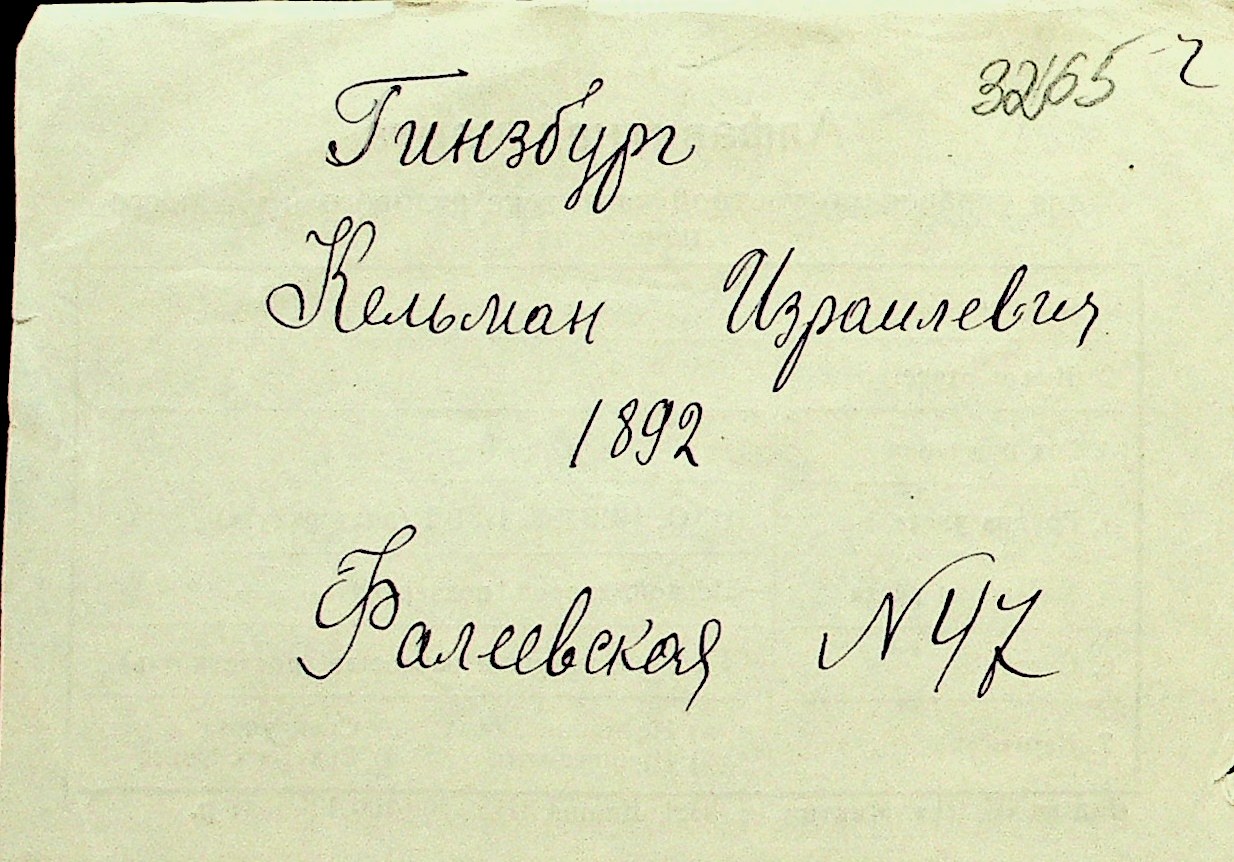 3265 ч
Гинзбург
Кельман Израилевич
1892
Фалеевская N 47